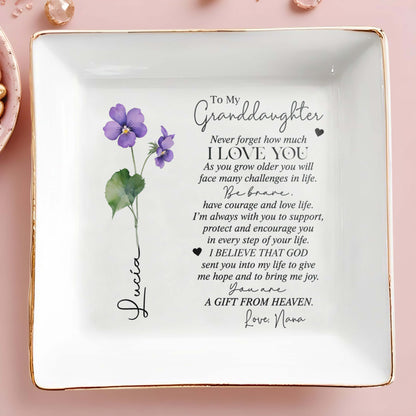 To My
Granddaughter
Never forget how much
I LOVE YOU
As you grow older you will
face many challenges in life.
Be brave,
have courage and love life.
I'm always with you to support,
protect and encourage you
in every step of your life.
I BELIEVE THAT GOD
sent you into my life to give
me hope and to bring me joy.
You are
A GIFT FROM HEAVEN.
Love, Nana
Lucia